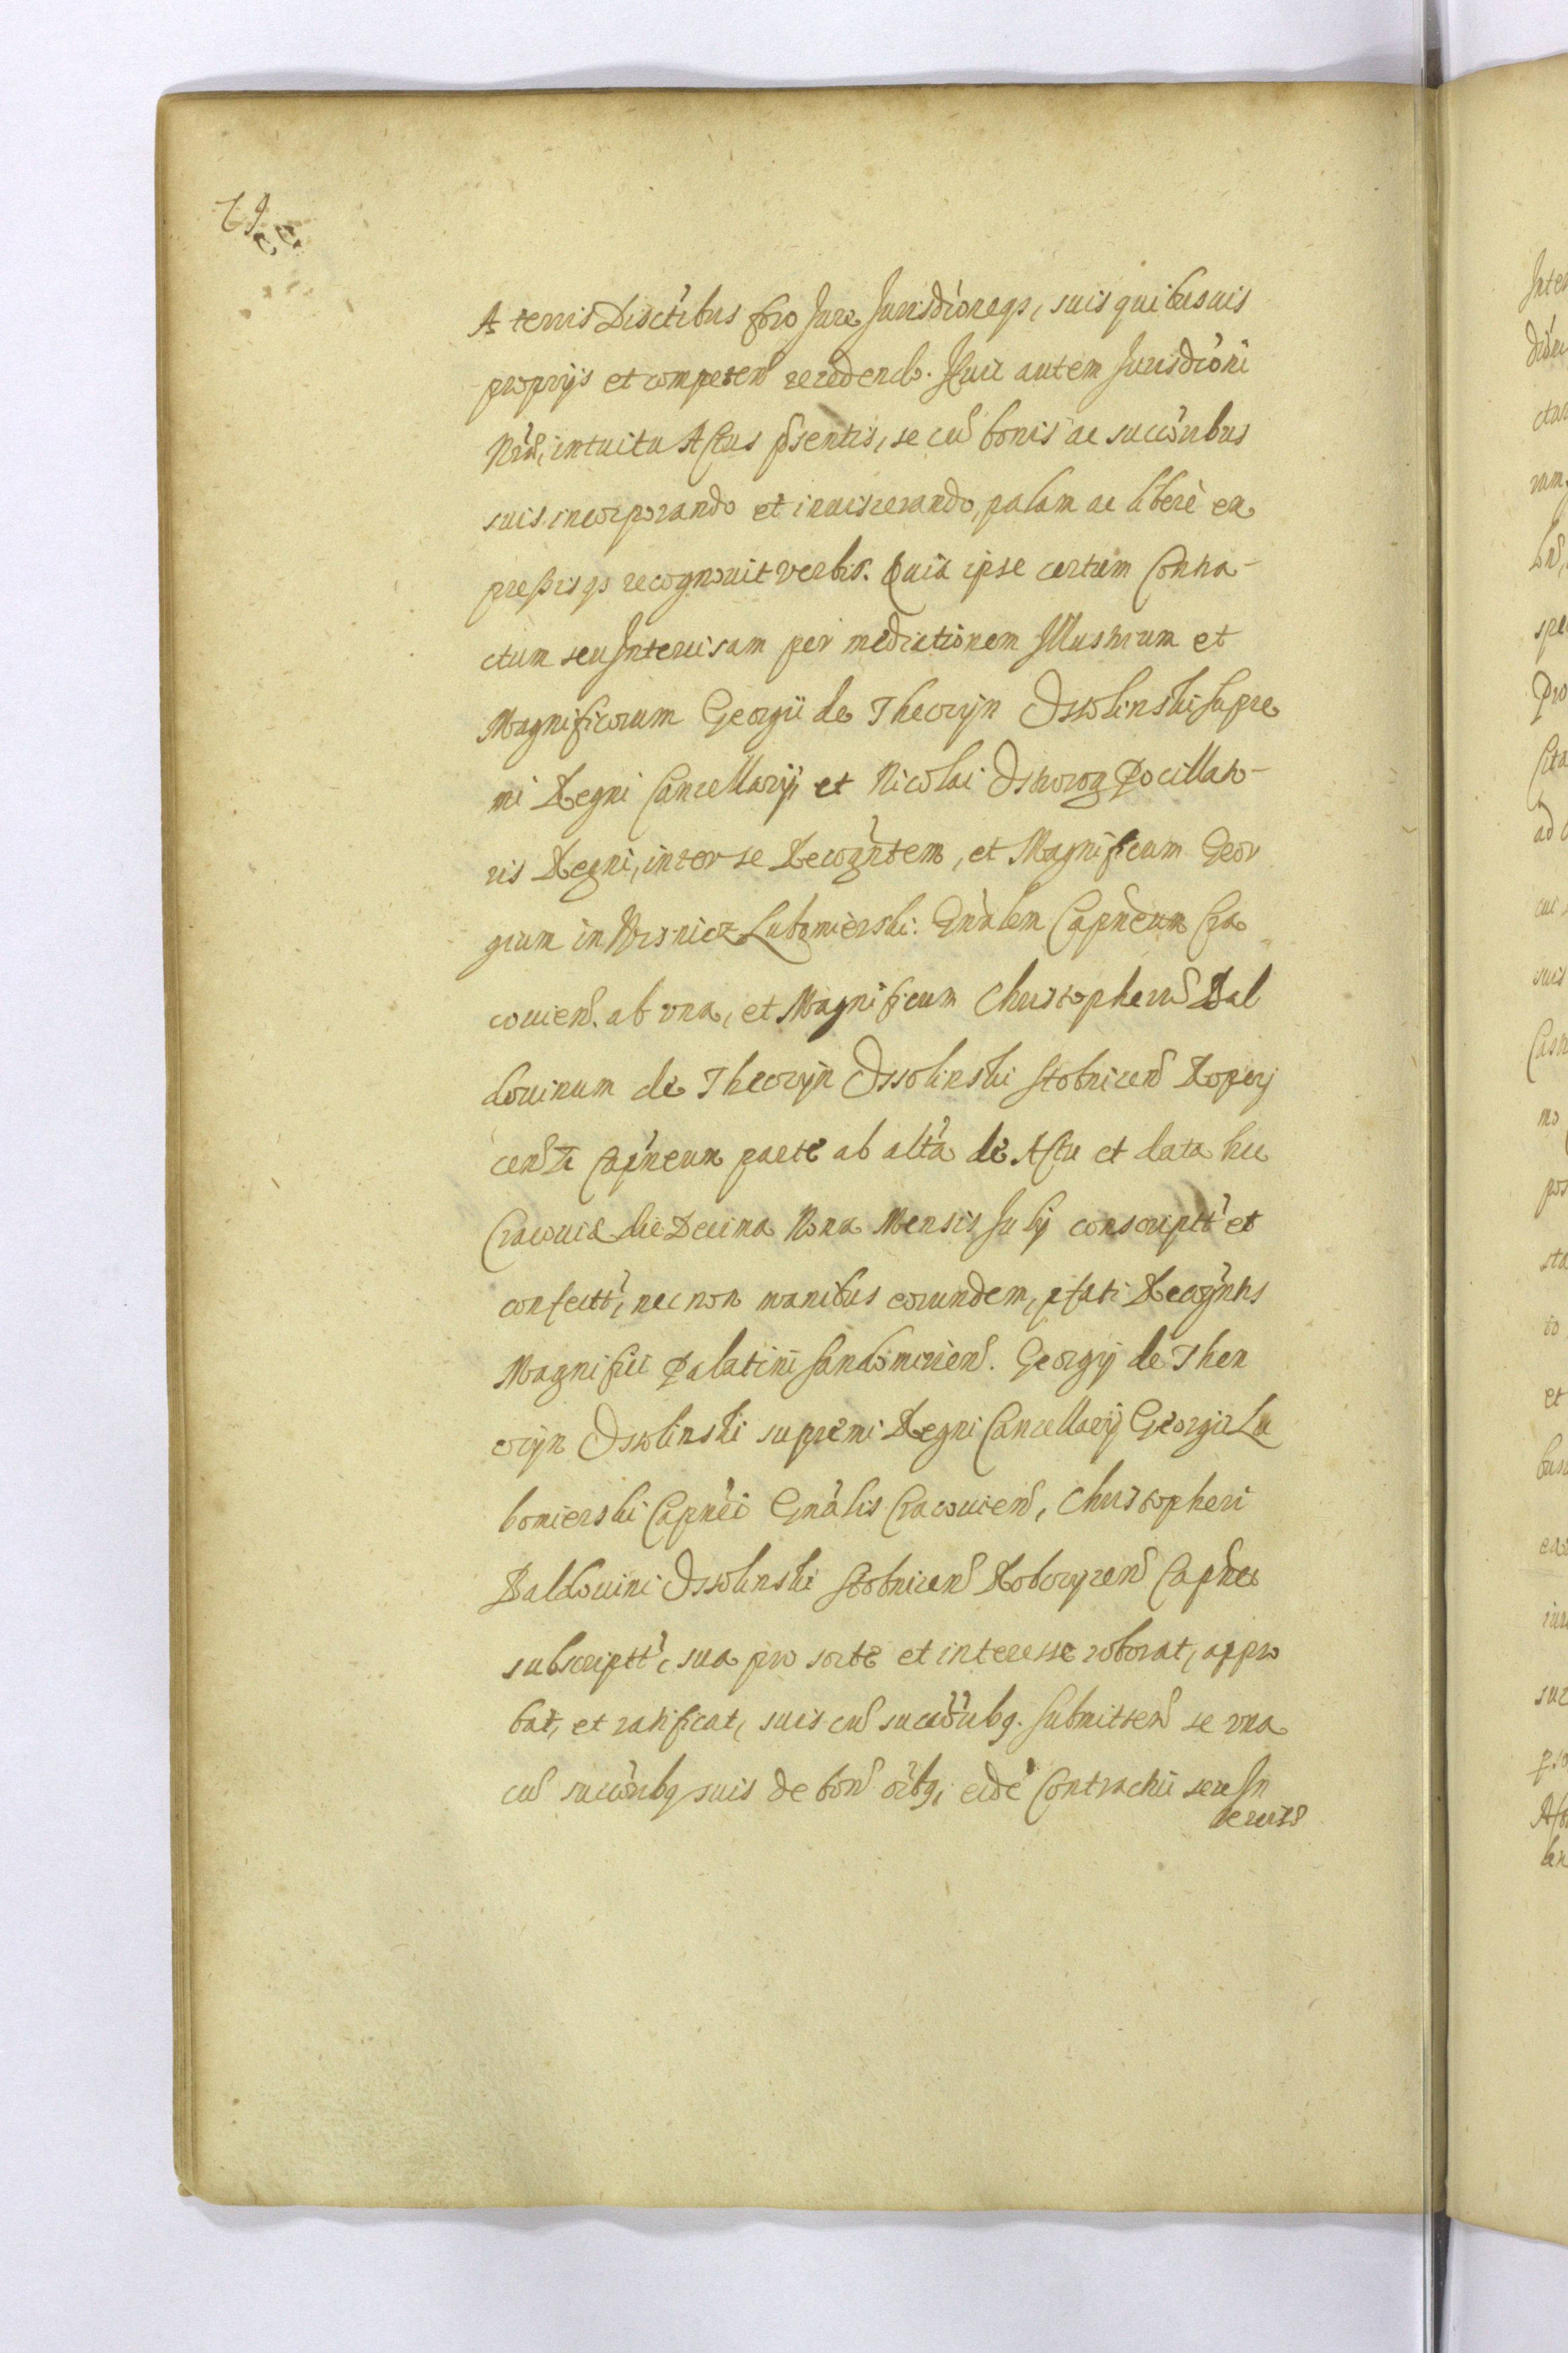 A terris Disctibus foro Jure Jurisdioneq3, suis quibusuis
proprijs et competen recedendo. Huic autem Jurisdioni
Nrae, intuitu Actus psentis, se cu bonis ac succoribus
suis incorporando et inuiscerando, palam ac liberè ex
pressisq3 recognouit verbis. Quia ipse certum Contra-
ctum seu Intercisam per mediationem Illustrium et
Magnificorum Georgii de Theczyn Ossolinski Supre
mi Regni Cancellarij et Nicolai Ostrorog Pocillato-
ris Regni, inter se Recogntem, et Magnificum Geor
gium in Wisnicz Lubomierski. Gnalem Capneum Cra
couien. ab vna, et Magnificum Christopheru Bal
douinum de Theczyn Ossolinski Stobnicen Ropczy
cen Capneum parte ab altà de Actu et data hic
Cracouiae die Decima Nona Mensis Julij conscriptt et
confectt, nec non manibus eorundem, pfati Recogntis
Magnifici Palatini Sandomirien. Georgij de Then
czyn Ossolinski supremi Regni Cancellarij Georgii Lu
bomierski Capnei Gnalis Cracouien, Christopheri
Baldouini Ossolinski Stobnicen Robczycen Capnei
subscriptt, sua pro sorte et interesse roborat, appro
bat, et ratificat, suis cu succorib9. Submitten se vna
cu succorib9 suis de bon oib9, eidé Contractui seu In
tercis